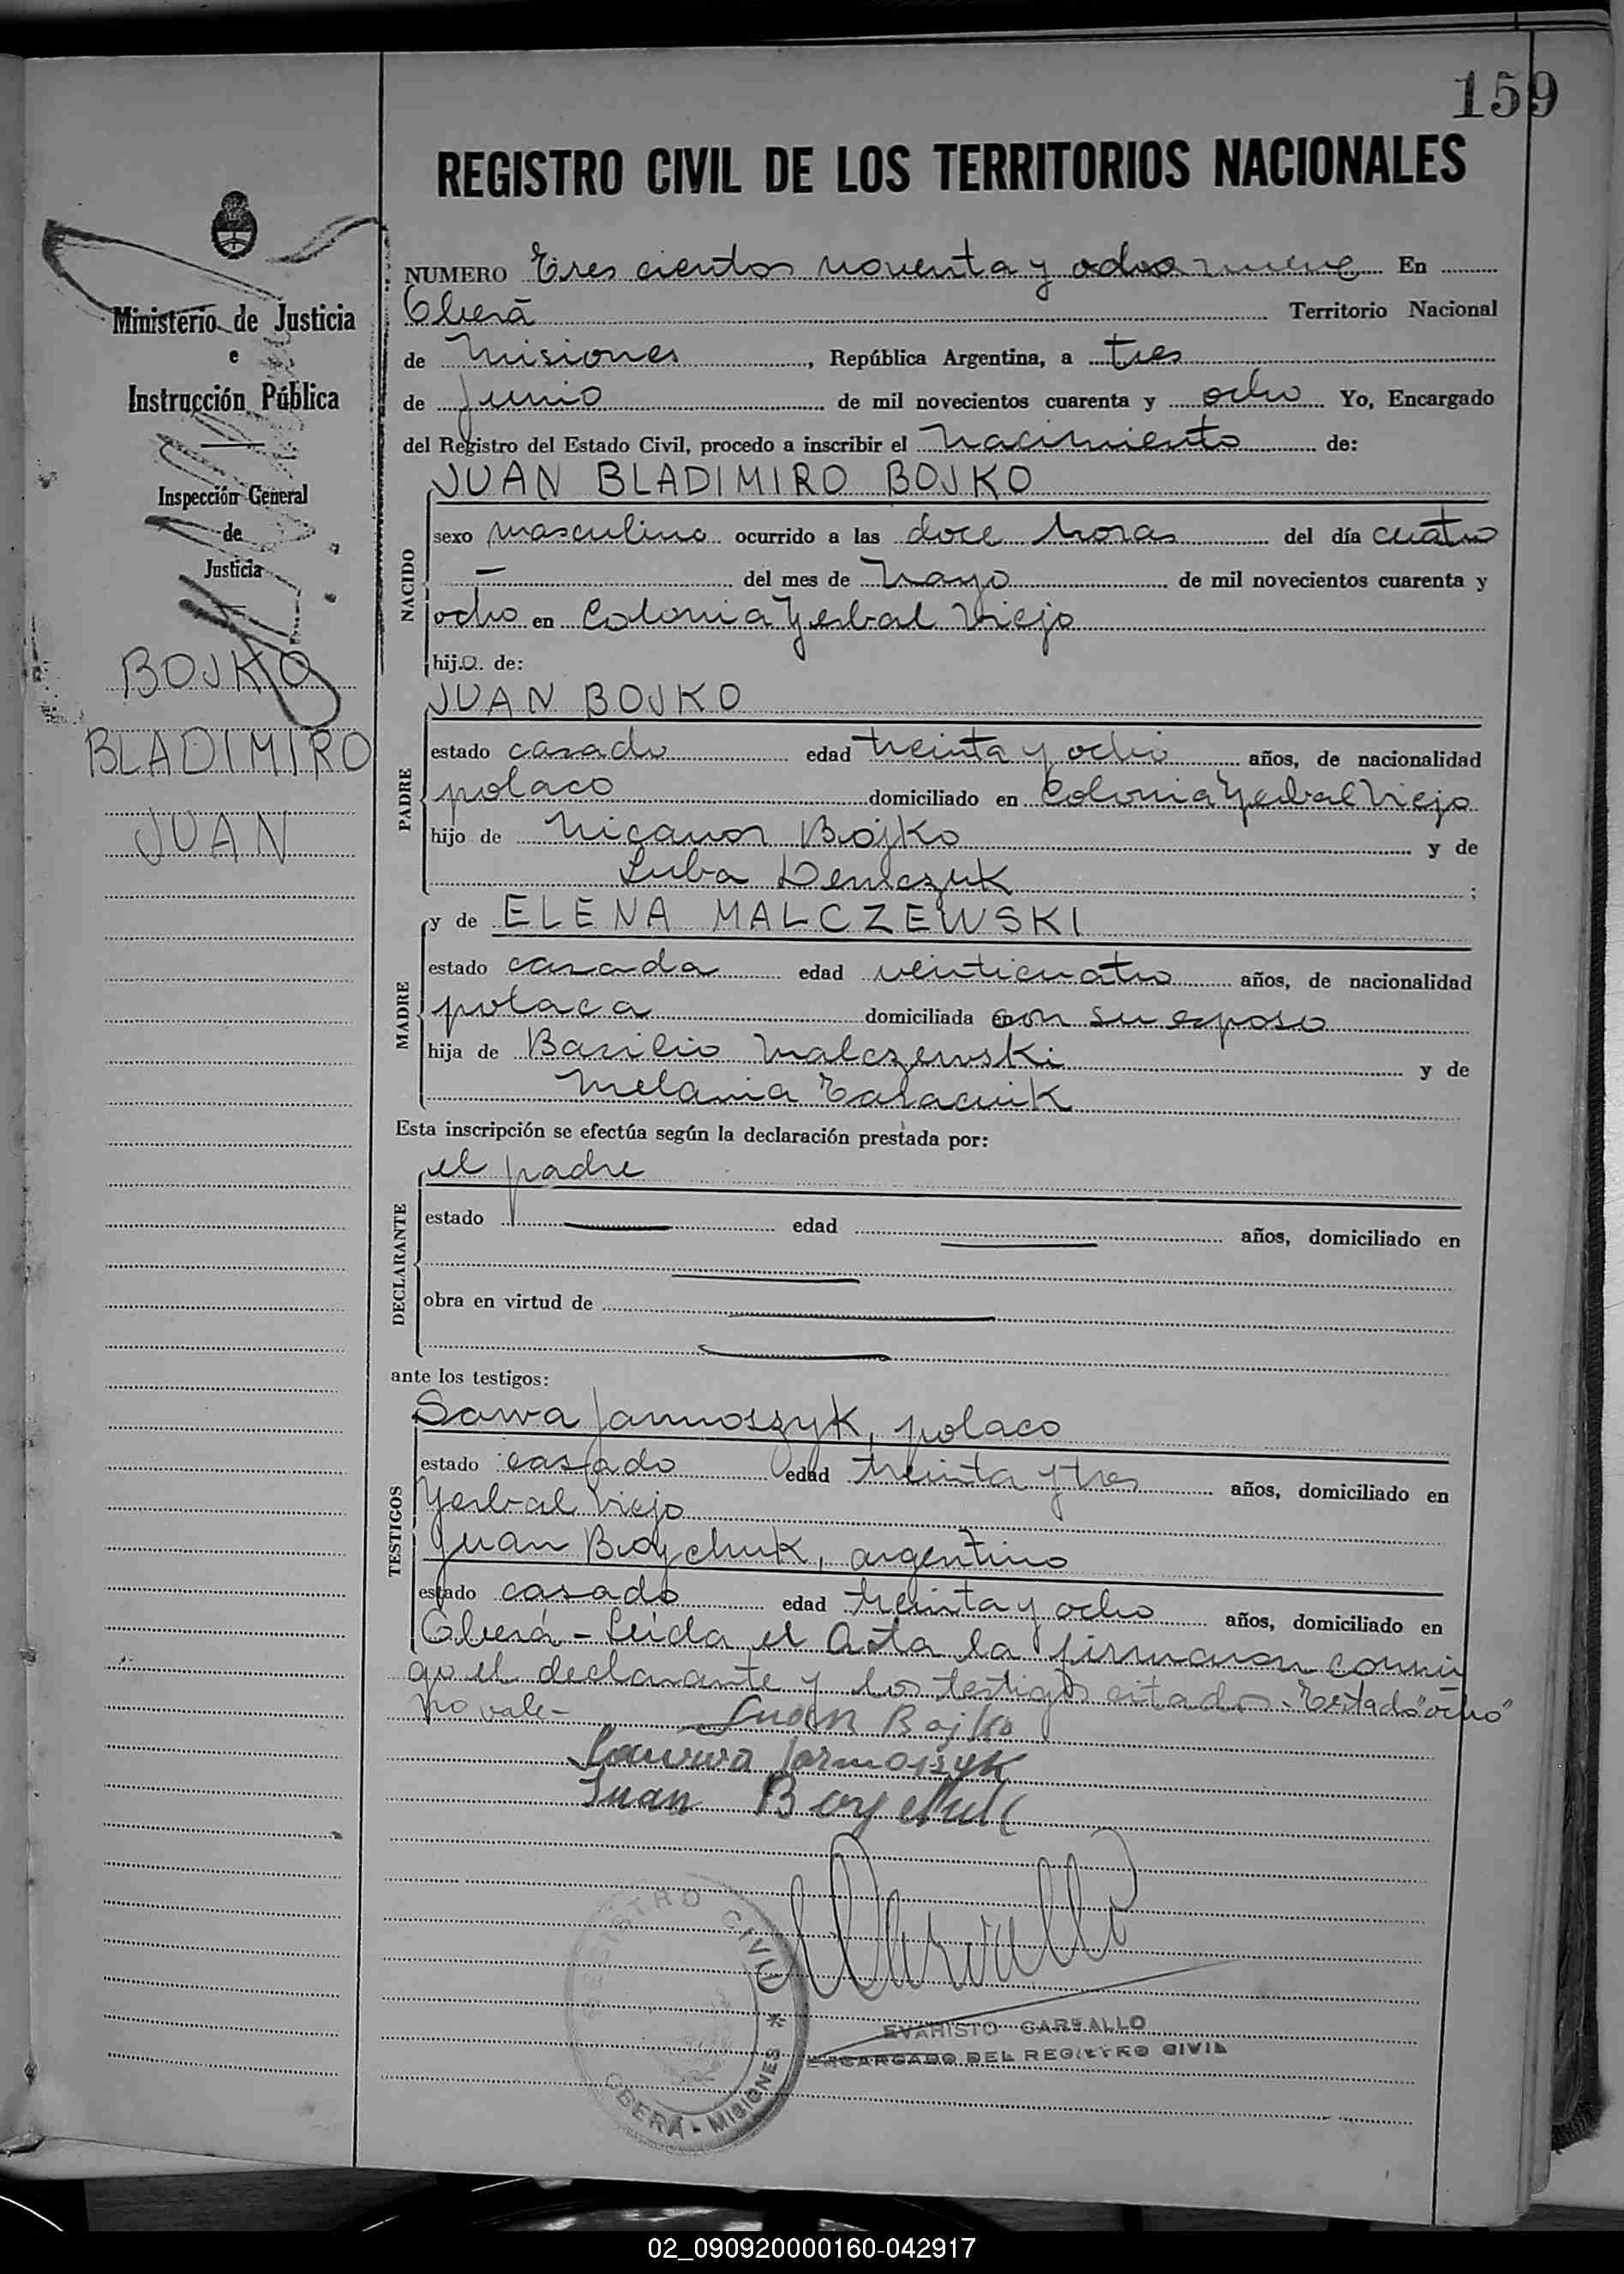 159
REGISTRO CIVIL DE LOS TERRITORIOS NACIONALES
Ministerio de Justicia
e
Instrucción Pública
Inspección General
de
Justicia
BOJKO
BLADIMIRO
JUAN
NUMERO Tres cientos noventa y ocho nueve En
Oberá Territorio Nacional
de Misiones, República Argentina, a tres
de junio de mil novecientos cuarenta y ocho Yo, Encargado
del Registro del Estado Civil, procedo a inscribir el nacimiento de:
NACIDO
JUAN BLADIMIRO BOJKO
sexo masculino ocurrido a las doce horas del día cuatro
— del mes de Mayo de mil novecientos cuarenta y
ocho en Colonia Yerbal Viejo
hijo de:
PADRE
JUAN BOJKO
estado casado edad treinta y ocho años, de nacionalidad
polaco domiciliado en Colonia Yerbal Viejo
hijo de Nicanor Bojko y de
Luba Demczuk;
MADRE
y de ELENA MALCZEWSKI
estado casada edad veinticuatro años, de nacionalidad
polaca domiciliada con su esposo
hija de Basilio Malczewski y de
Melania Tarasiuk
Esta inscripción se efectúa según la declaración prestada por:
DECLARANTE
el padre
estado — edad — años, domiciliado en
—
obra en virtud de —
—
ante los testigos:
TESTIGOS
Sawa Jarmoszyk, polaco
estado casado edad treinta y tres años, domiciliado en
Yerbal Viejo
Juan Boychuk, argentino
estado casado edad treinta y ocho años, domiciliado en
Oberá - Leída el Acta la firmaron conmi
go el declarante y los testigos citados - Testado "ocho"
no vale -
Juan Bojko
Jarmoszyk
Juan Boychuk
Carvallo
REGISTRO CIVIL * OBERÁ - MISIONES
EVARISTO CARVALLO
ENCARGADO DEL REGISTRO CIVIL
02_090920000160-042917